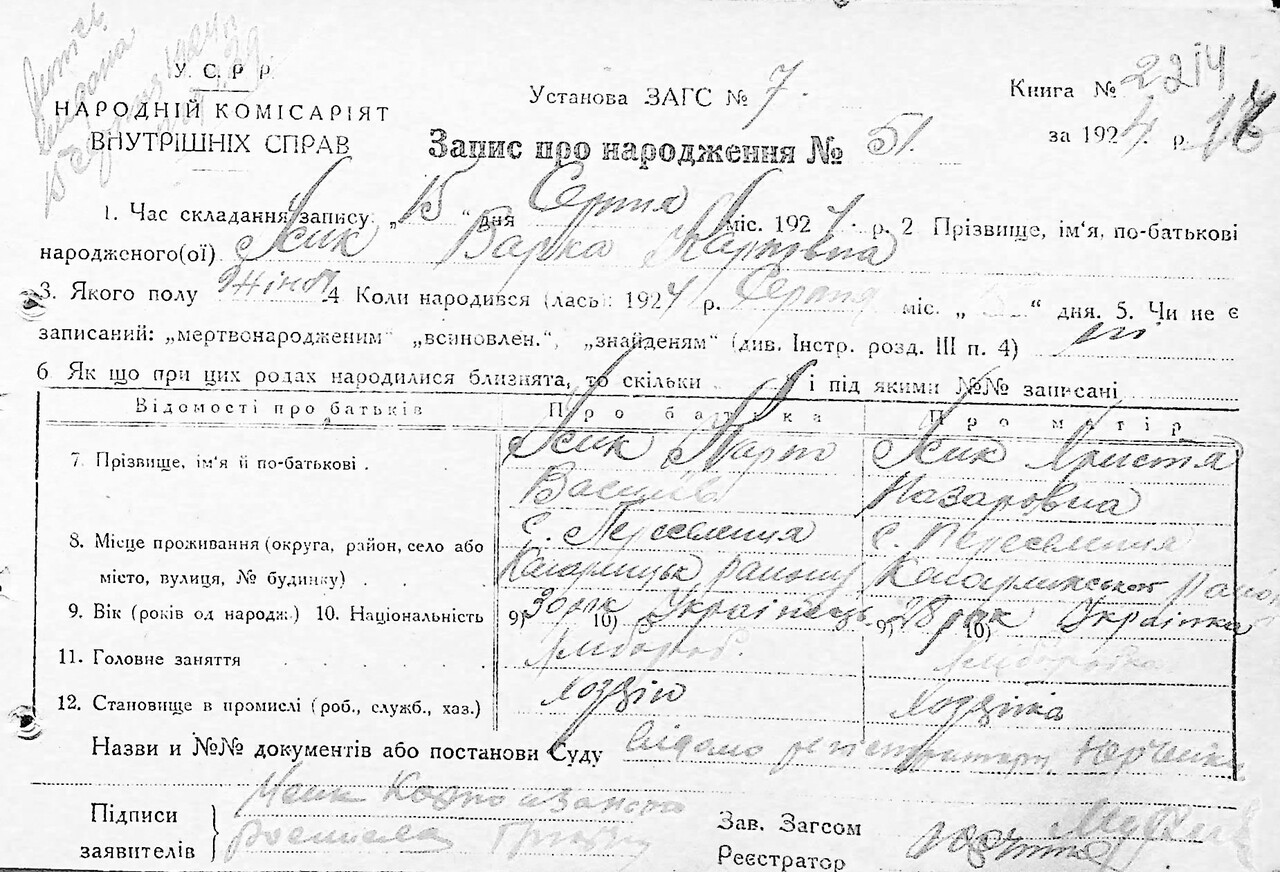 У. С. Р. Р.
НАРОДНІЙ КОМІСАРІЯТ
ВНУТРІШНІХ СПРАВ
Установа ЗАГС № 7.
Книга № 2214
за 1924 р. 12
Запис про народження № 51.
1. Час складання запису: „15“ дня Серпня міс. 1924 р. 2 Прізвище, ім'я, по-батькові
народженого(ої) Варка Карпівна
3. Якого полу жіноч 4 Коли народився (лась): 1924 р. Серпня міс. „ “ дня. 5. Чи не є
записаний: „мертвонародженим“ „всиновлен.“, „знайденям“ (див. Інстр. розд. III п. 4) ні
6 Як що при цих родах народилися близнята, то скільки і під якими №№ записані
Відомості про батьків Про батька Про матір
7. Прізвище, ім'я й по-батькові . Карпо Христя
Василів Назаровна
8. Місце проживання (округа, район, село або с. Переселення с. Переселення
місто, вулиця, № будинку) . . Кагарлицьк району Кагарликського район
9. Вік (років од народж.) 10. Національність 9) 30 рок 10) Українець 9) 28 рок 10) Українка
11. Головне заняття . . . . Хлібороб. Хліборобка
12. Становище в промислі (роб., служб., хаз.) Хозяін Хозяіка
Назви и №№ документів або постанови Суду Відомо
Підписи
заявителів
Карпо
Зав. Загсом
Реєстратор